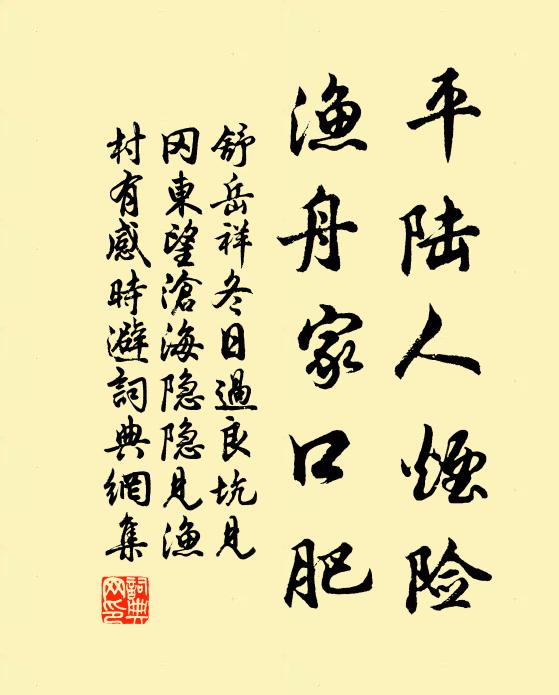 平陆人煙险
渔舟家口肥
舒岳祥冬日過良坑見
冈東望滄海隐隐見渔
村有感時避詞典網集
詞典網印